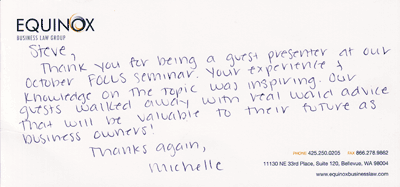 EQUINOX
BUSINESS LAW GROUP
Steve,
Thank you for being a guest presenter at our
October FOCUS seminar. Your experience &
knowledge on the topic was inspiring. Our
guests walked away with real world advice
that will be valuable to their future as
business owners!
Thanks again,
Michelle
PHONE 425.250.0205 FAX 866.278.8862
11130 NE 33rd Place, Suite 120, Bellevue, WA 98004
www.equinoxbusinesslaw.com